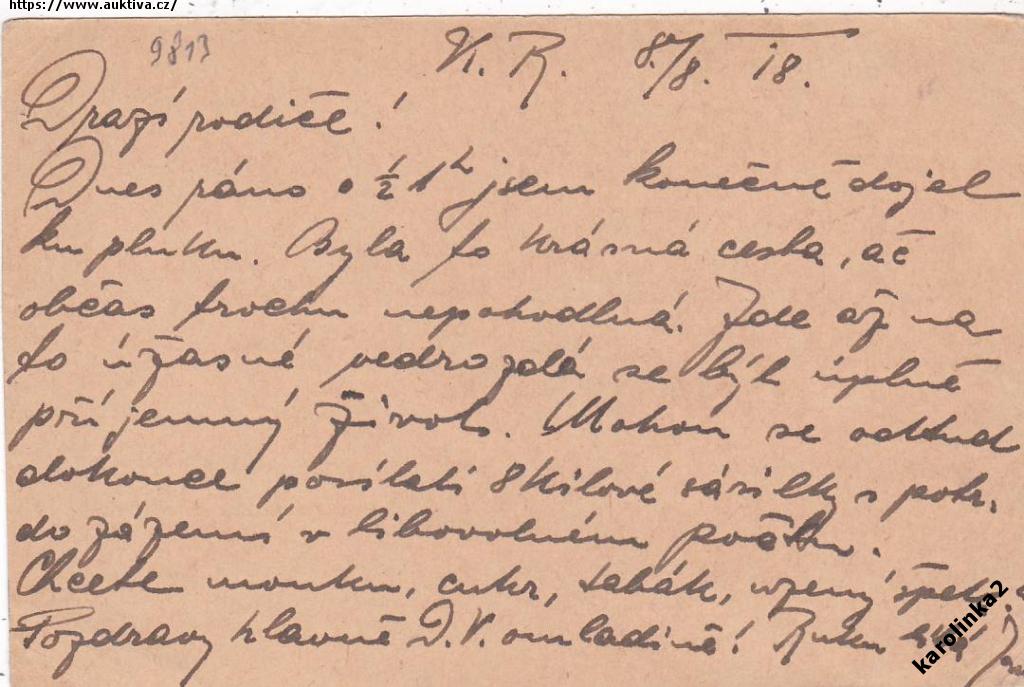 https://www.auktiva.cz/
9813
K. R. 8./8. 18.
Drazí rodiče!
Dnes ráno o ½ 1h jsem konečně dojel
ku pluku. Byla to krásná cesta, ač
občas trochu nepohodlná. Zde až na
to úžasné vedro zdá se být úplně
příjemný život. Mohou se odtud
dokonce posílati 8 kilové zásilky s potr.
do zázemí v libovolném počtu.
Chcete mouku, cukr, tabák, uzený špek?
Pozdravy hlavně D. V. omladině! Ruku
karolinka2